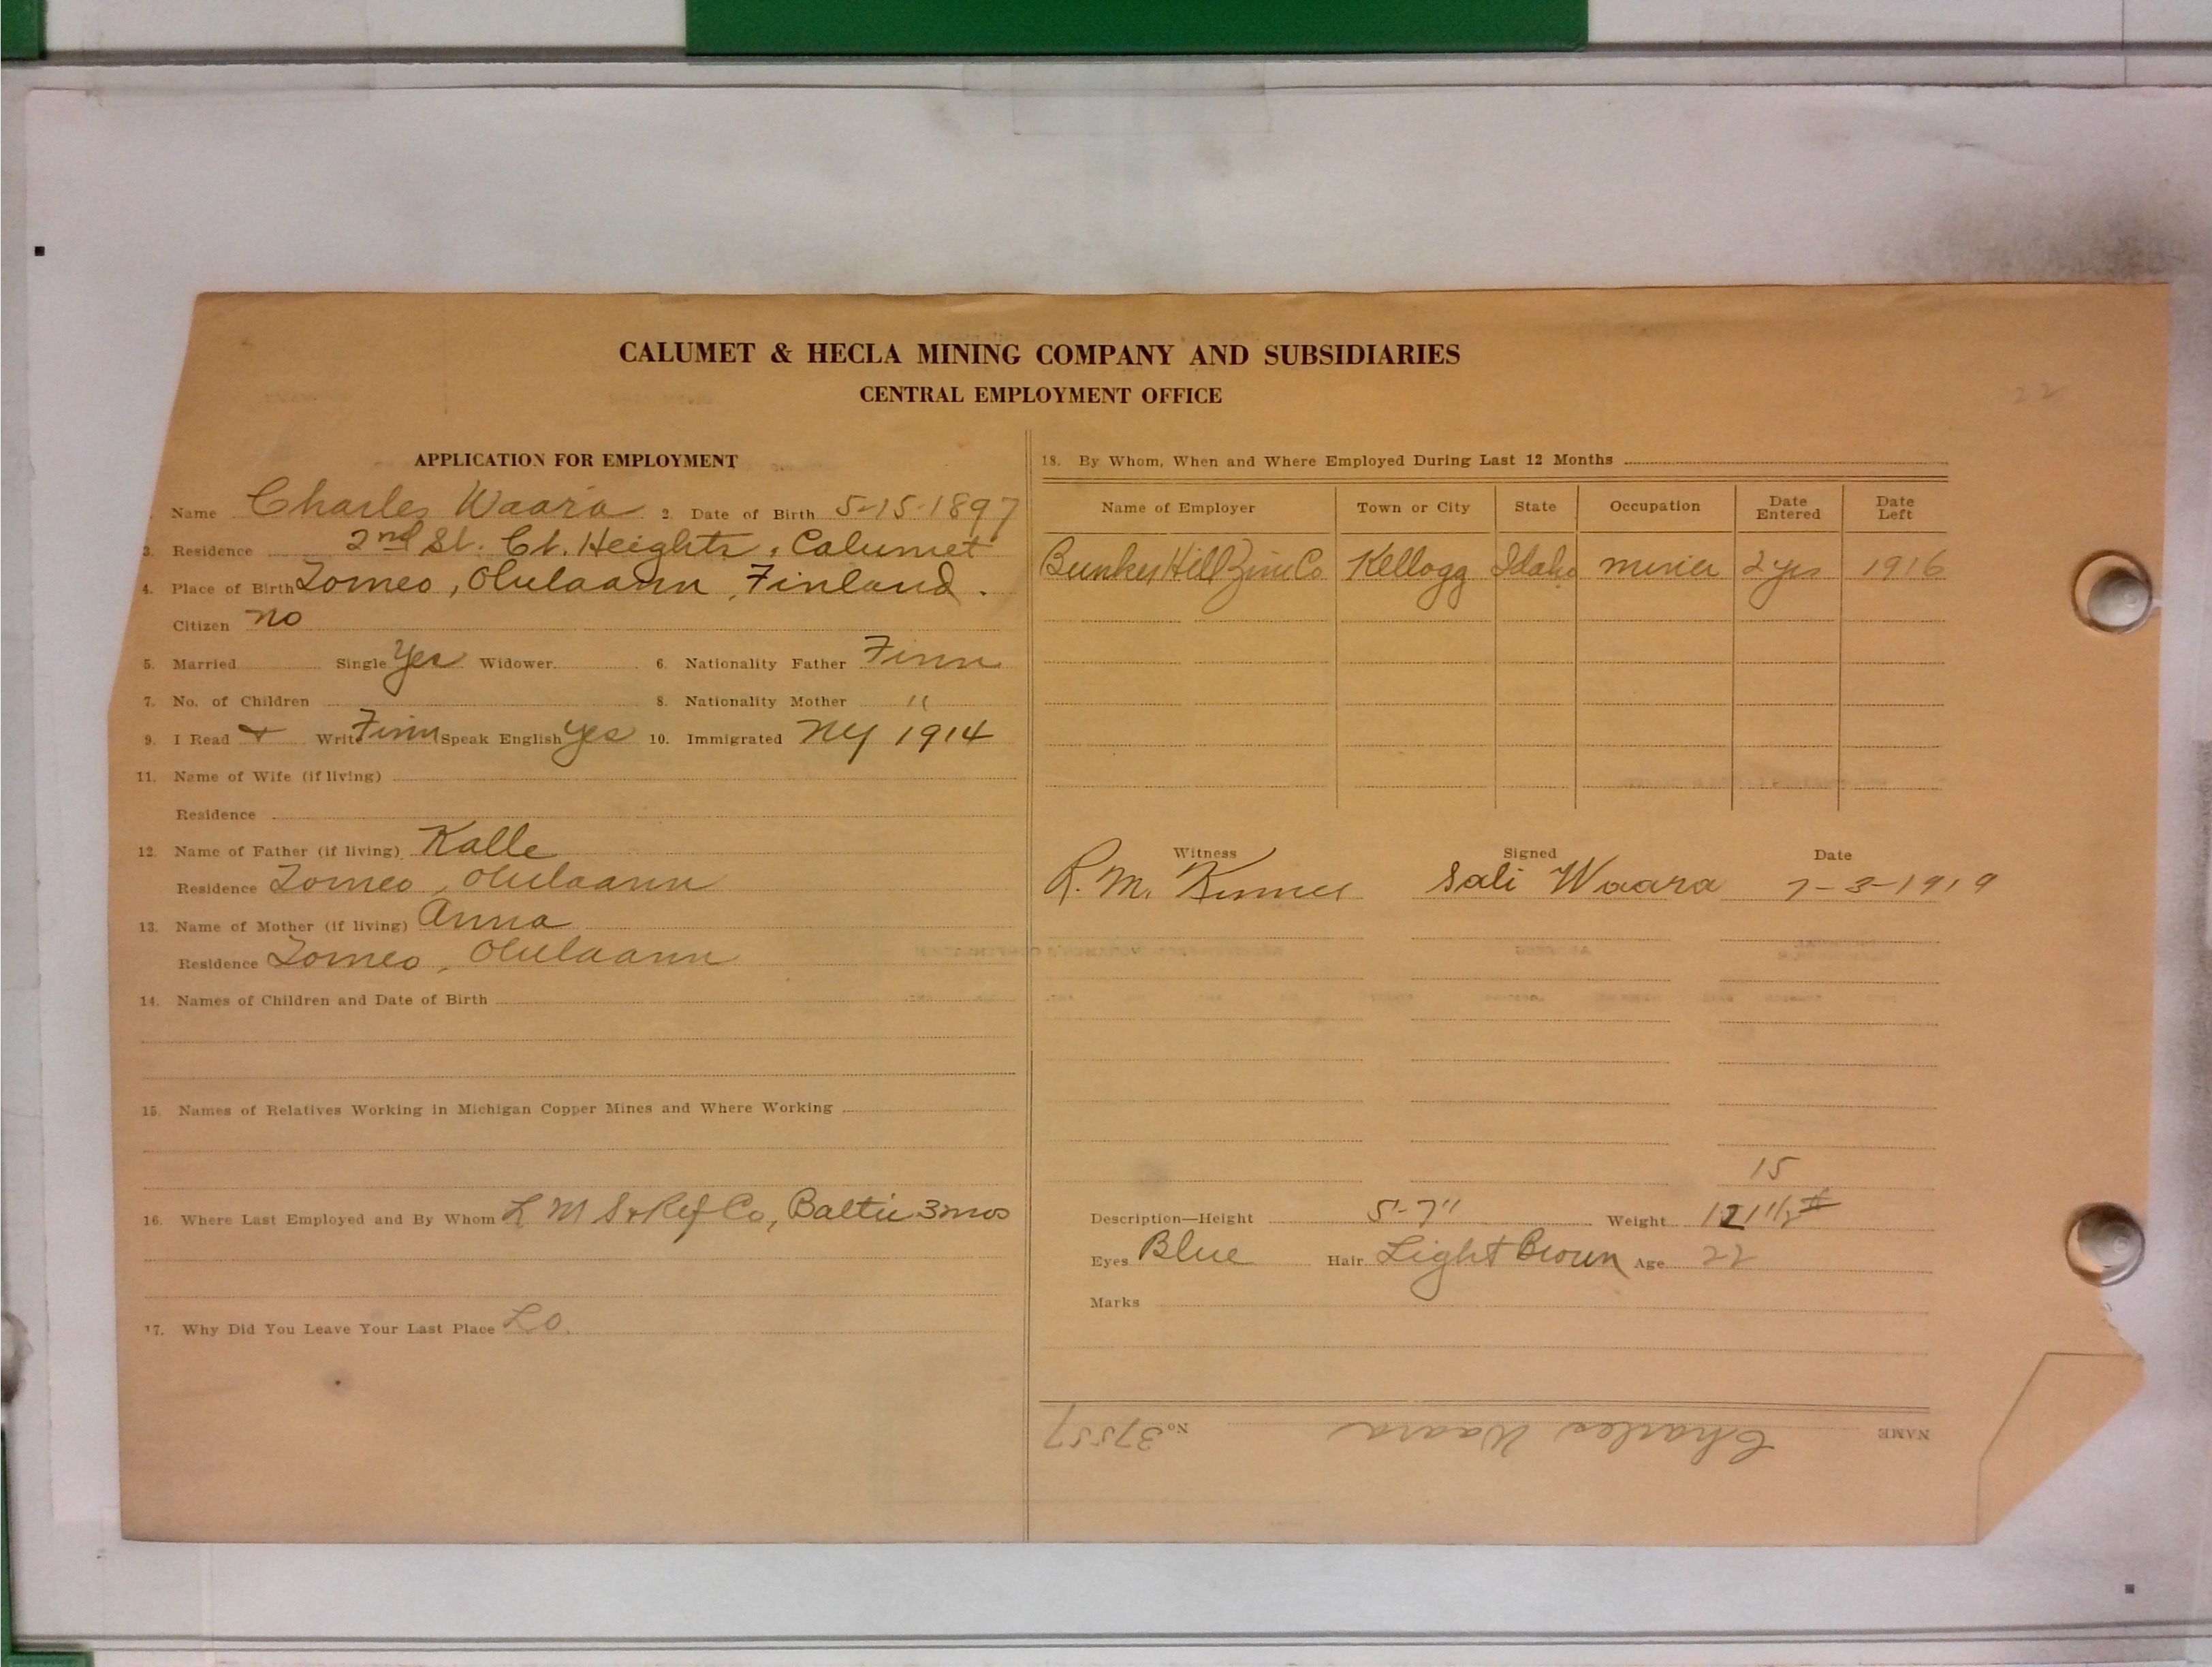 CALUMET & HECLA MINING COMPANY AND SUBSIDIARIES
CENTRAL EMPLOYMENT OFFICE
22
APPLICATION FOR EMPLOYMENT
Name Charles Waara 2. Date of Birth 5-15-1897
3. Residence 2nd St. Ct. Heights, Calumet
4. Place of Birth Torneo, Olulaann, Finland.
Citizen no
5. Married Single Yes Widower 6. Nationality Father Finn
7. No. of Children 8. Nationality Mother "
9. I Read & Write Finn Speak English Yes 10. Immigrated NY 1914
11. Name of Wife (if living)
Residence
12. Name of Father (if living) Kalle
Residence Torneo, Olulaann
13. Name of Mother (if living) Anna
Residence Torneo, Olulaann
14. Names of Children and Date of Birth
15. Names of Relatives Working in Michigan Copper Mines and Where Working
16. Where Last Employed and By Whom L M S & Ref Co, Baltic 3 mos
17. Why Did You Leave Your Last Place LO.
18. By Whom, When and Where Employed During Last 12 Months
Name of Employer Town or City State Occupation Date Entered Date Left
Bunker Hill Zinc Co Kellogg Idaho miner 2 yrs 1916
Witness Signed Date
R. M. Sali Waara 7-3-1919
15
Description—Height 5'-7" Weight 121 1/2 #
Eyes Blue Hair Light Brown Age 22
Marks
NAME Charles Waara No. 37557